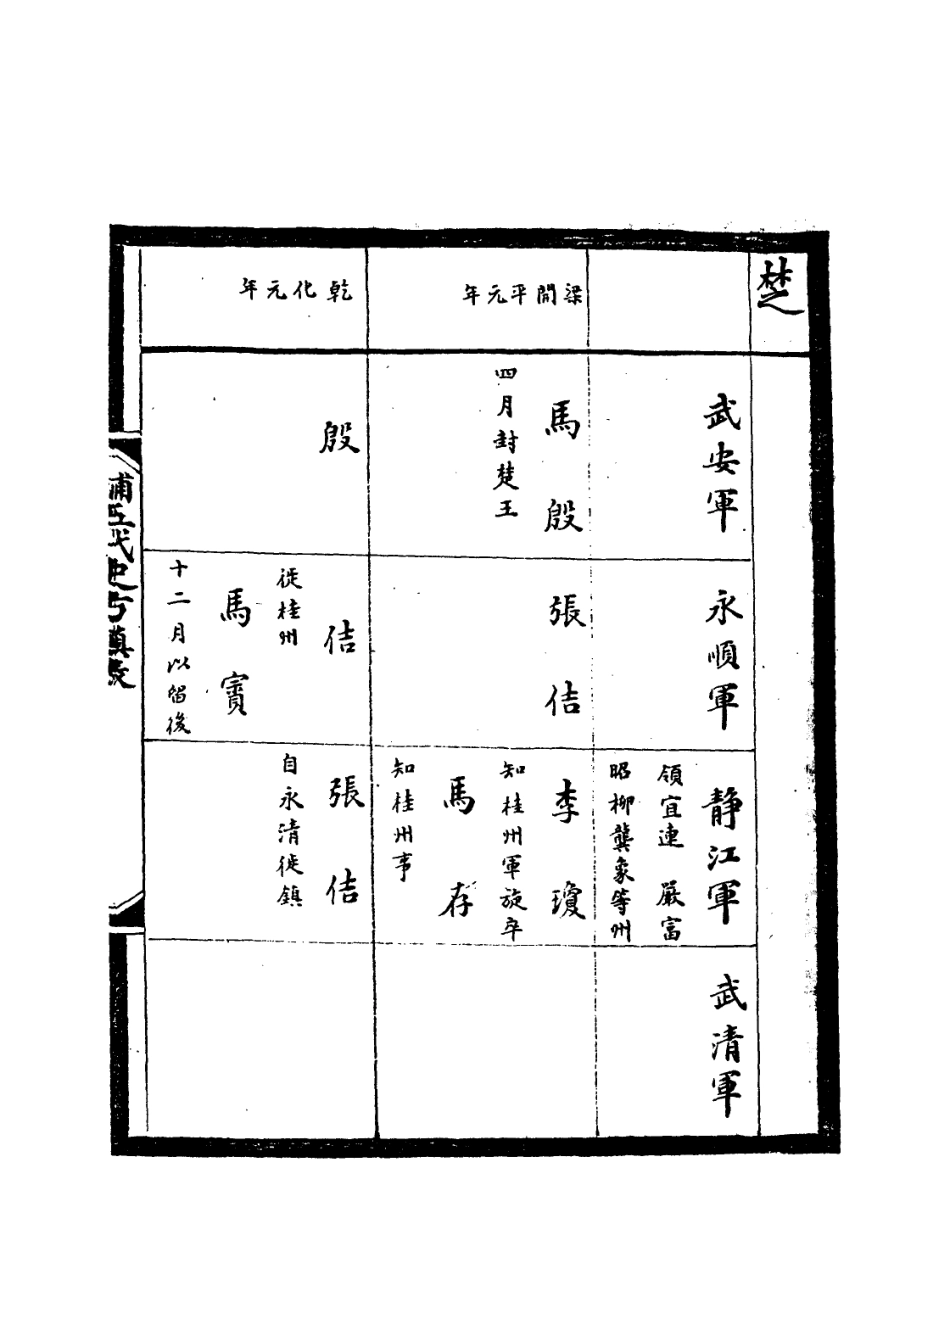 楚
武安軍
永順軍
静江軍
領宜連 嚴富
昭柳龔象等州
武清軍
梁開平元年
馬殷
四月封楚王
張佶
李瓊
知桂州軍旋卒
馬存
知桂州事
乾化元年
殷
佶
徙桂州
馬賨
十二月以留後
張佶
自永清徙鎮
補五代史方鎮表